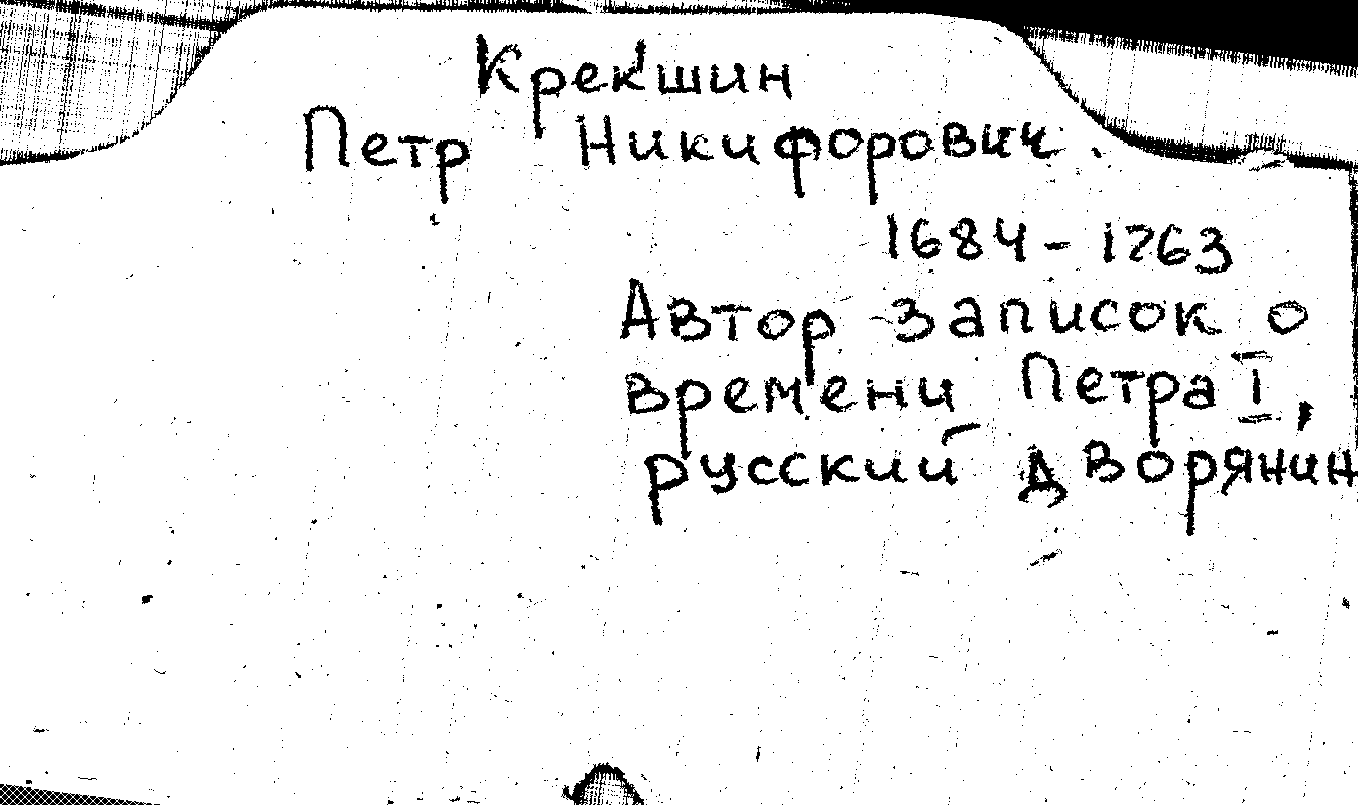 Крекшин
Петр Никифорович.
1684 - 1763
Автор записок о
времени Петра I,
русский дворянин